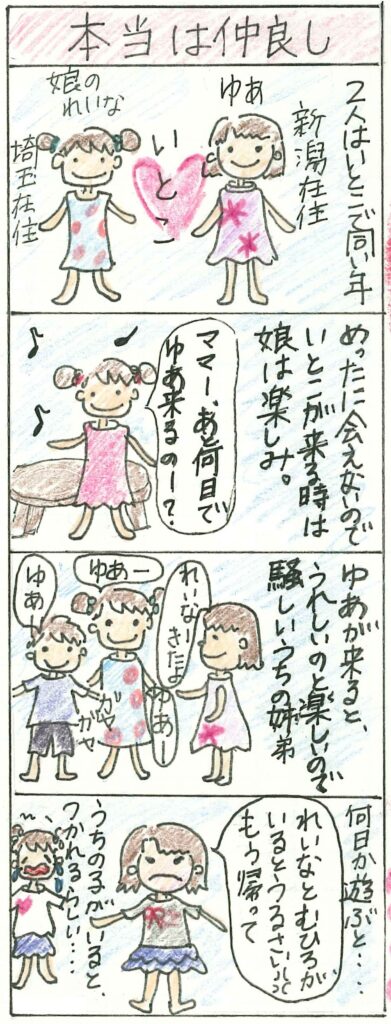 本当は仲良し
2人はいとこで同い年
ゆあ
新潟在住
いとこ
娘の
れいな
埼玉在住
めったに会えないので
いとこが来る時は
娘は楽しみ。
ママー、あと何日で
ゆあ来るのー?
ゆあが来ると、
うれしいのと楽しいので
騒しいうちの姉弟
れいなー
きたよ
ゆあー
ゆあー
ゆあー
ガヤ
ガヤ
何日か遊ぶと‥‥
れいなとむひろが
いるとうるさい!!
もう帰って
うちの子がいると、
つかれるらしい‥‥